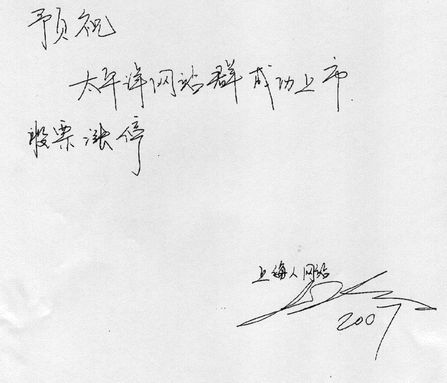 预祝
太平洋网站群成功上市
股票涨停
上海人网站
2007